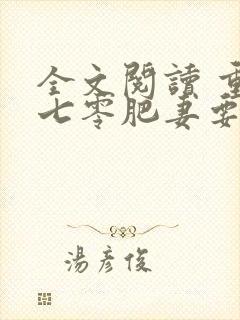 全文閱讀 重
七零肥妻要
湯彥俊